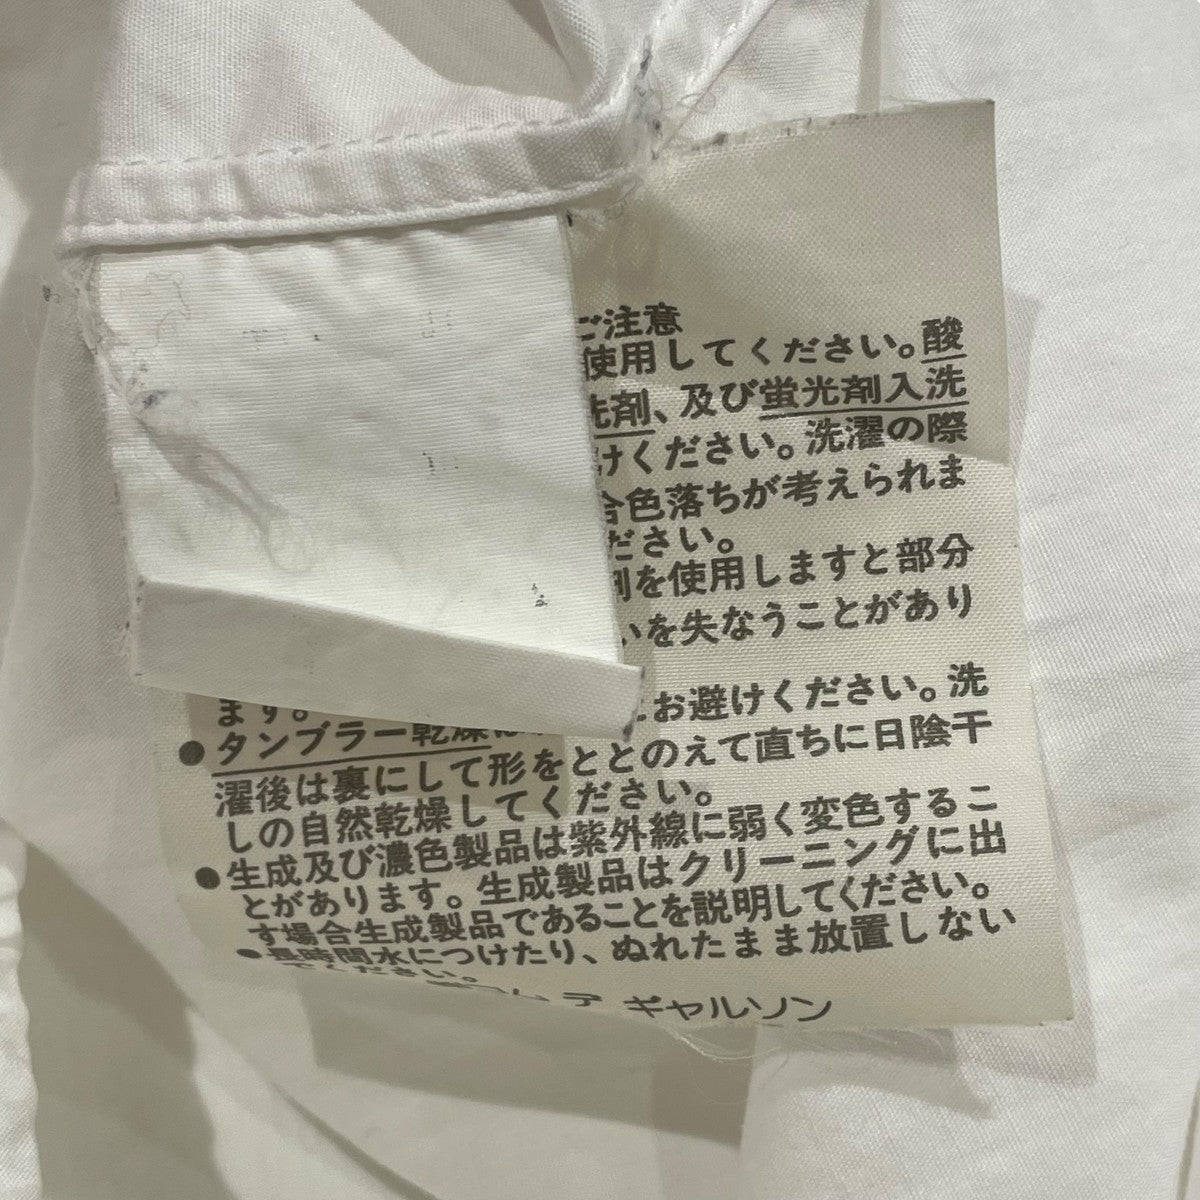 ご注意
使用してください。酸
洗剤、及び蛍光剤入洗
けください。洗濯の際
合色落ちが考えられま
ださい。
剤を使用しますと部分
いを失なうことがあり
ます。
●タンブラー乾燥はお避けください。洗
濯後は裏にして形をととのえて直ちに日陰干
しの自然乾燥してください。
●生成及び濃色製品は紫外線に弱く変色するこ
とがあります。生成製品はクリーニングに出
す場合生成製品であることを説明してください。
●長時間水につけたり、ぬれたまま放置しない
でください。
コム デ ギャルソン